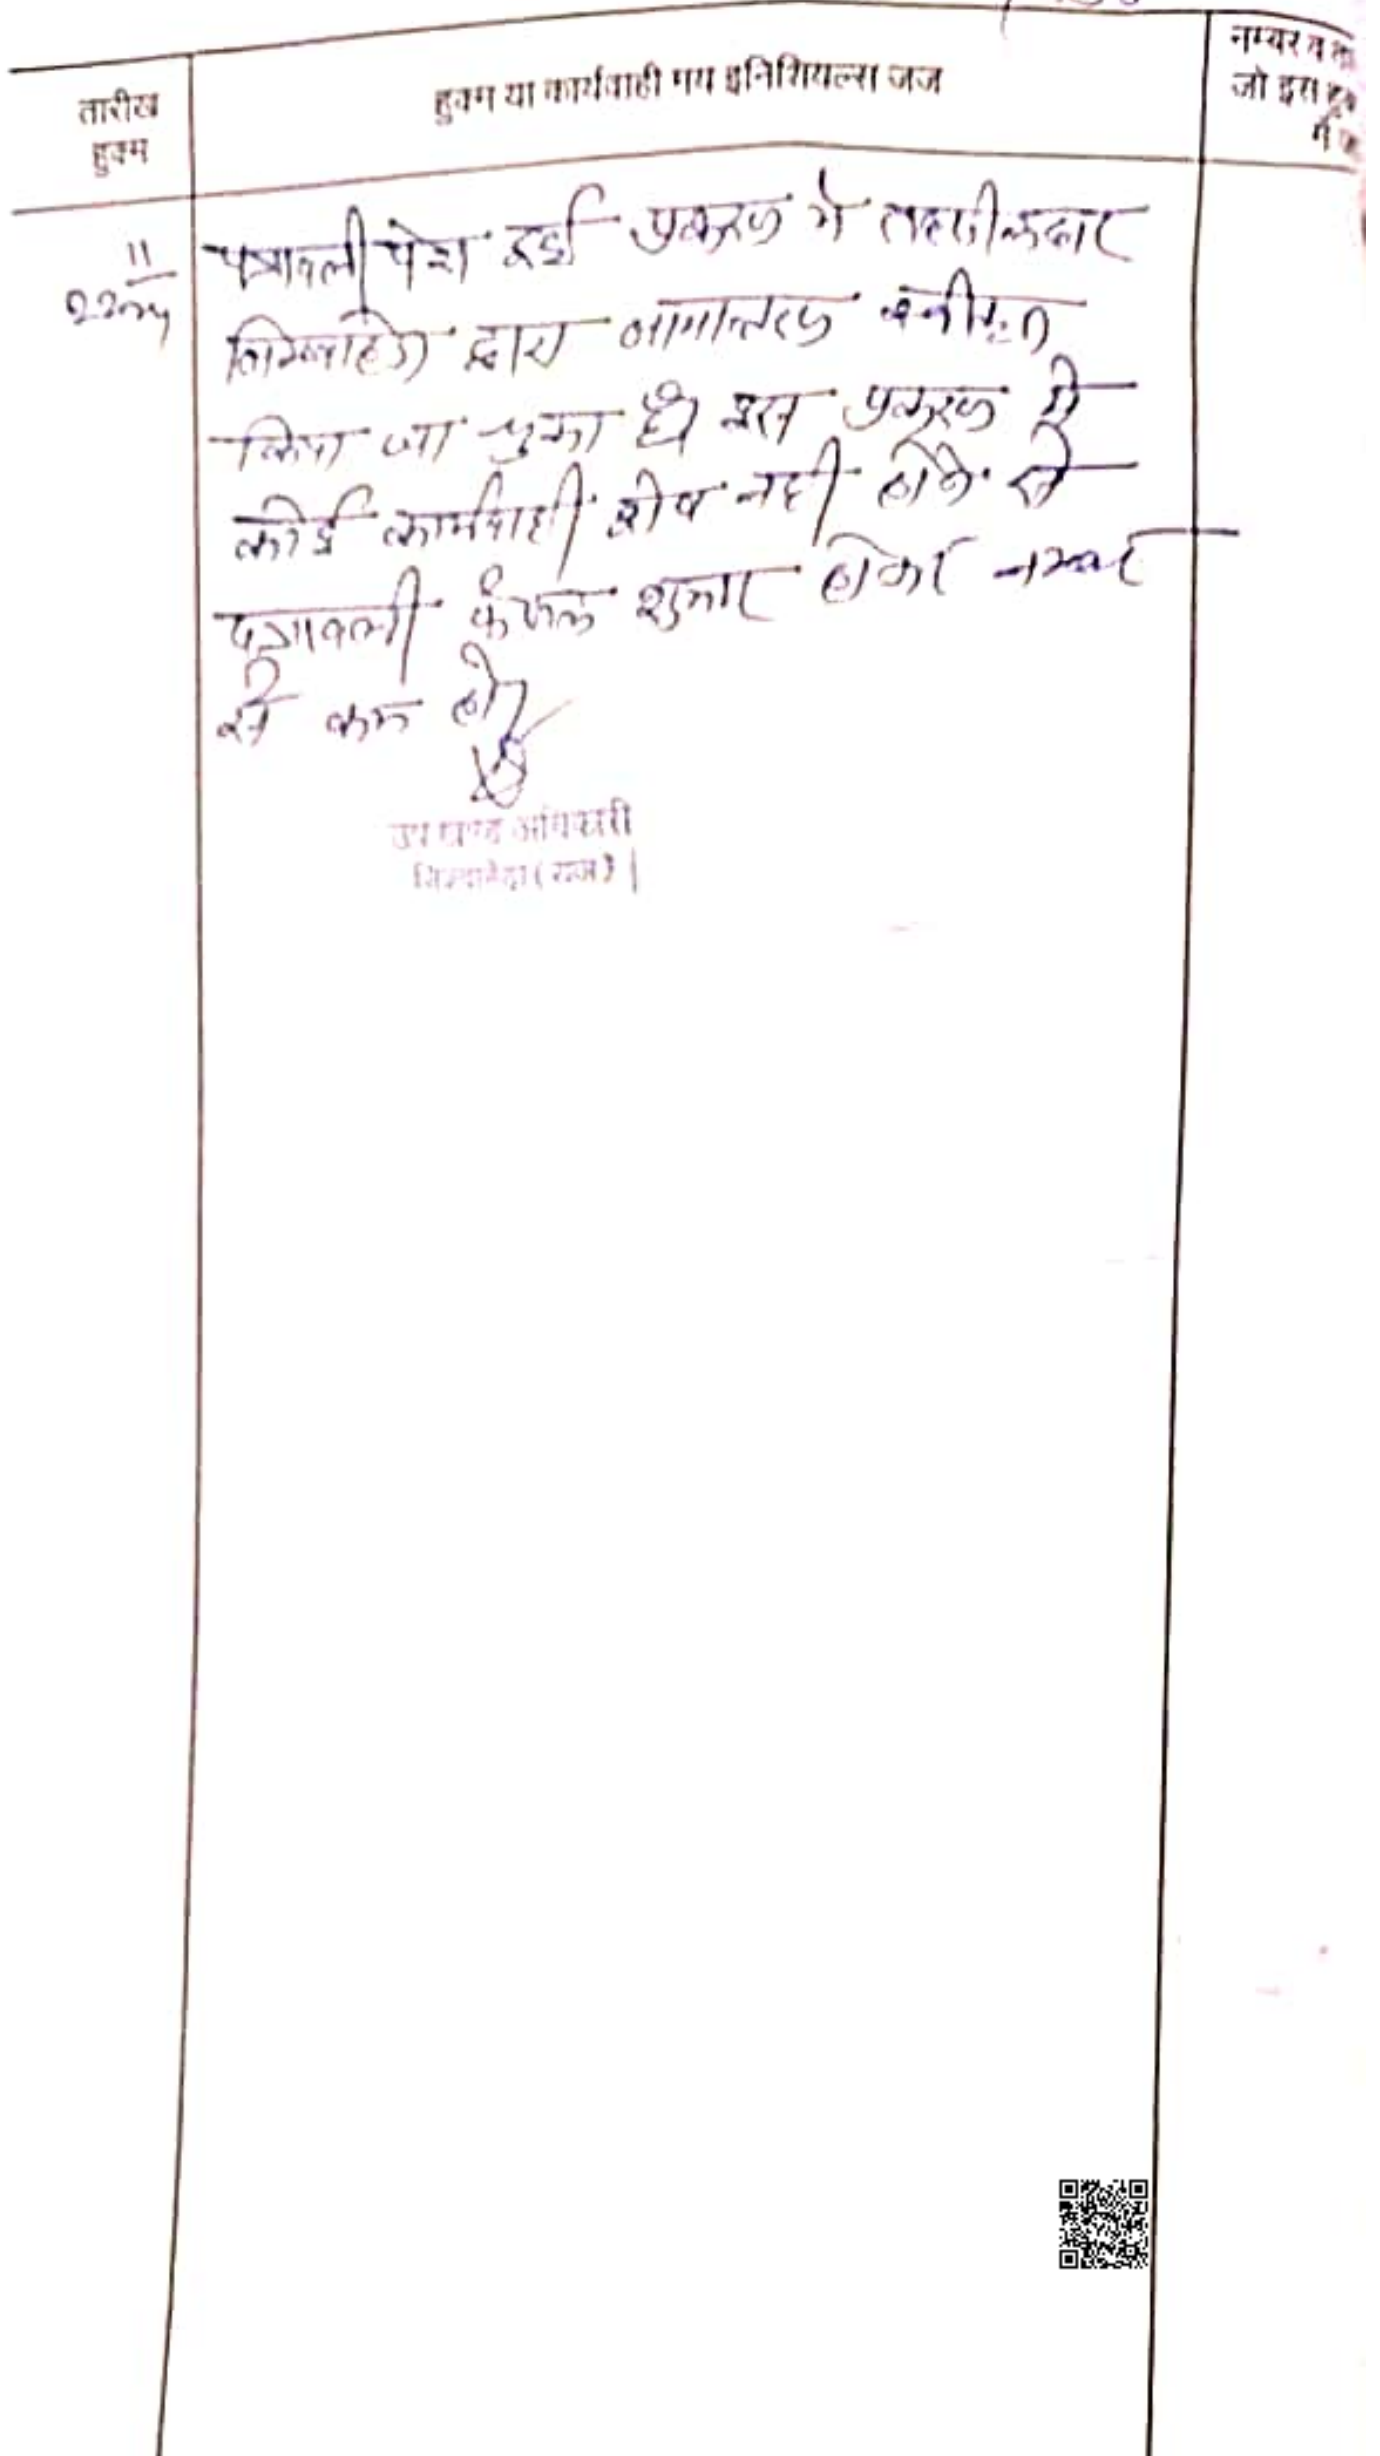 तारीख
हुक्म
हुक्म या कार्यवाही मय इनिशियल्स जज
नम्बर व
जो इस हुक्म
में
11
पत्रावली पेश हुई प्रकरण में तहसीलदार
निम्बाहेड़ा द्वारा नामान्तरण स्वीकृत
किया जा चुका है। इस प्रकरण में
कोई कार्यवाही शेष नहीं होने से
पत्रावली फैसल शुमार होकर नम्बर
से कम हो।
उप खण्ड अधिकारी
निम्बाहेड़ा (राज.)